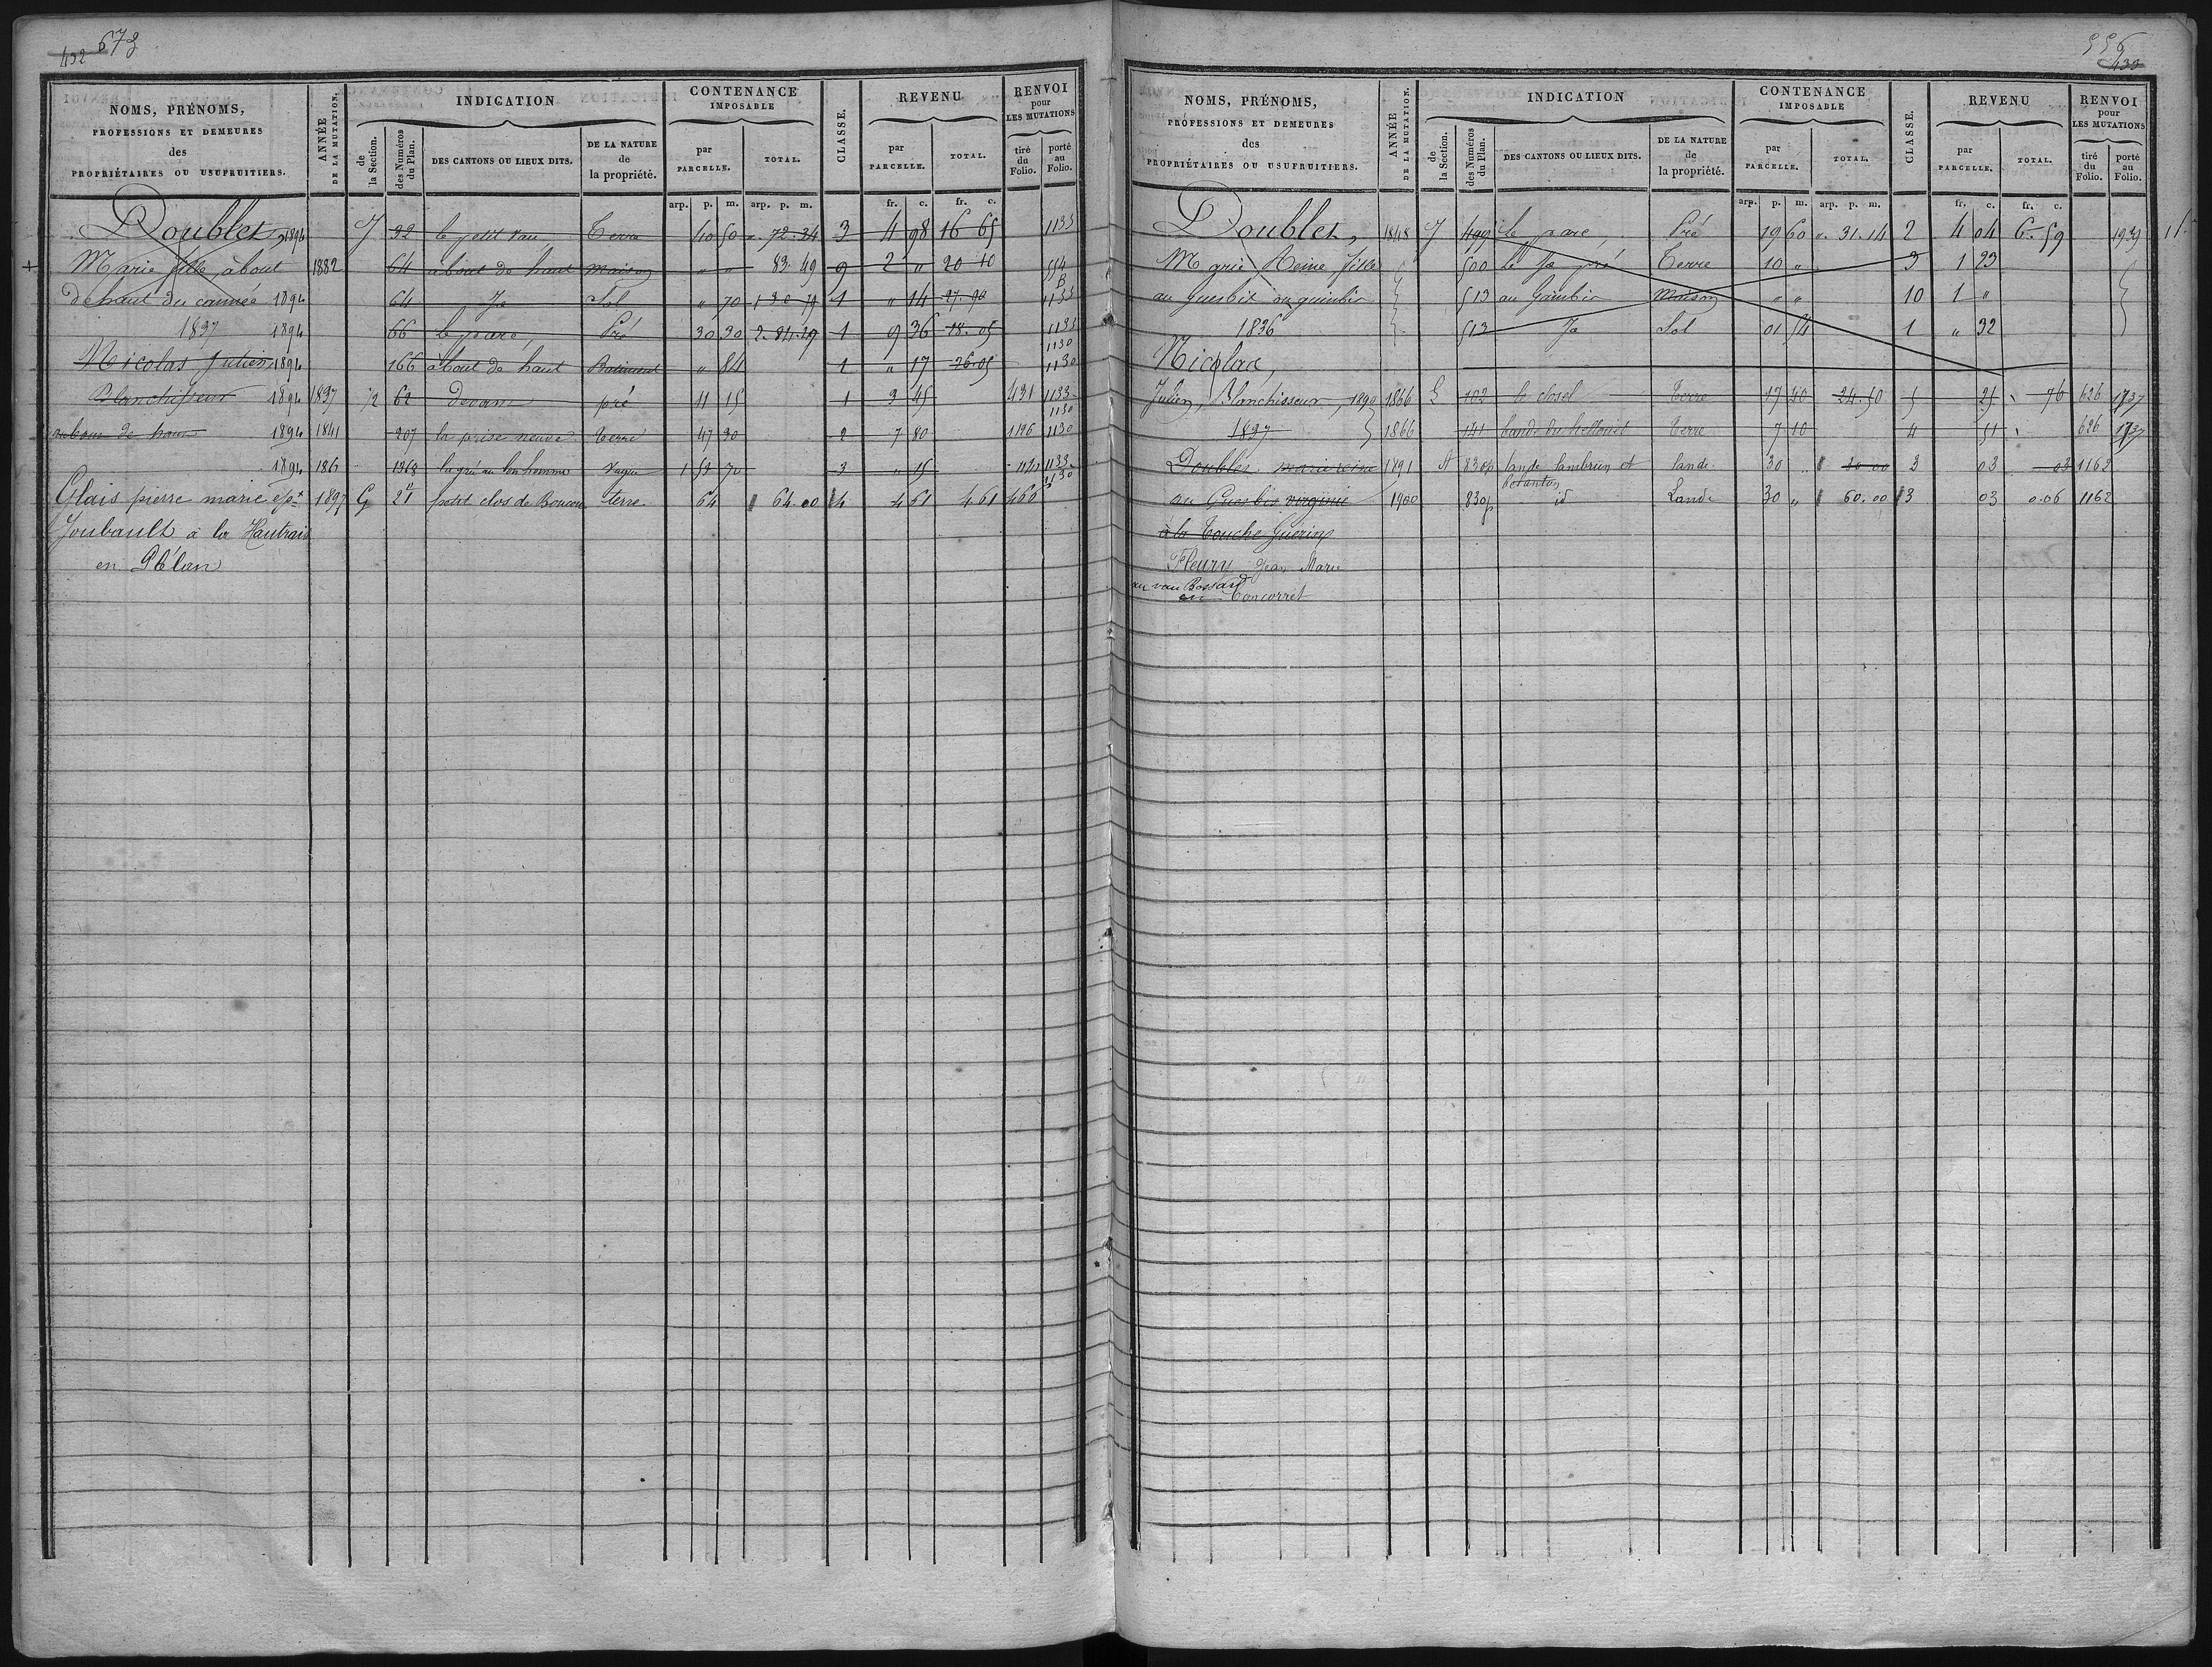 432 673
NOMS, PRÉNOMS, PROFESSIONS ET DEMEURES des PROPRIÉTAIRES OU USUFRUITIERS.
ANNÉE DE LA MUTATION.
INDICATION
de la Section.
des Numéros du Plan.
DES CANTONS OU LIEUX DITS.
DE LA NATURE de la propriété.
CONTENANCE IMPOSABLE
par PARCELLE.
TOTAL.
CLASSE.
REVENU
par PARCELLE.
TOTAL.
RENVOI pour LES MUTATIONS
tiré du Folio.
porté au Folio.
arp. p. m. arp. p. m. fr. c. fr. c.
Doublet, 1894 J 32 le petit Terre 40 50 " 72.34 3 4 98 16 65 1133
Marie fille à bout 1882 64 à bout de haut maison " " 83.49 9 2 " 20 10 554 B
de haut du 1894 64 Ja Sol " 70 1 " 14 27.90 1133
1837 1894 66 le parc, Pré 30 30 2.84.29 1 9 36 18.05 1133 1130
Nicolas Julien 1894 166 à bout de haut Batiment " 84 1 " 17 26.05 1130
Blanchisseur 1894 1837 J2 62 pré 11 15 1 3 45 431 1133 1130
au bout de haut 1894 1841 207 la prise neuve Terre 47 30 2 7 80 1126 1130
1894 186 1368 la gré au bon homme Vague 1 52 70 3 " 15 1133 1130
Glais pierre marie ép.x 1897 G 21 petit clos de terre 64 64.00 4 4 61 4 61 460
Joubault à la Hautrais
en Plélan
556 433
NOMS, PRÉNOMS, PROFESSIONS ET DEMEURES des PROPRIÉTAIRES OU USUFRUITIERS.
ANNÉE DE LA MUTATION.
INDICATION
de la Section.
des Numéros du Plan.
DES CANTONS OU LIEUX DITS.
DE LA NATURE de la propriété.
CONTENANCE IMPOSABLE
par PARCELLE.
TOTAL.
CLASSE.
REVENU
par PARCELLE.
TOTAL.
RENVOI pour LES MUTATIONS
tiré du Folio.
porté au Folio.
arp. p. m. arp. p. m. fr. c. fr. c.
Doublet, 1848 J 499 le parc, Pré 19 60 " 31.14 2 4 04 6.59 1939
Marie Reine fille 500 le pré Terre 10 " 3 1 23
au guesbis ou guimbir 513 au Gaimbir Maison " " 10 1 "
1836 513 Ja Sol 01 54 1 " 32
Nicolas,
Julien, Blanchisseur, 1890 1866 G 102 le closel Terre 17 40 24.50 5 25 76 626 1737
1837 1866 141 Terre 7 10 4 51 626 1737
Doublet marie reine 1891 A 830p lande lambrun et lande 30 " 30 00 3 03 03 1162
botanton
au Guesbis virginie 1900 830p id Lande 30 " 60.00 3 03 0.06 1162
à la Touche Guerin
Fleury Jean Marie
au vau Bossard
en Concorret